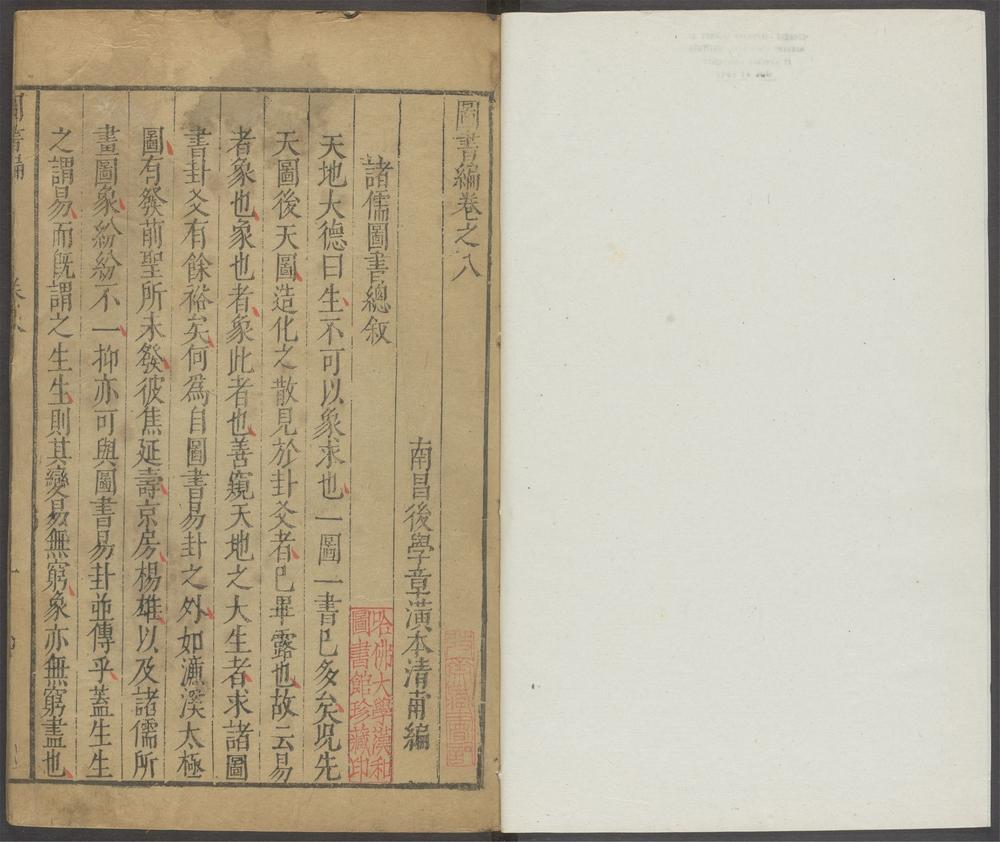 圖書編卷之八
南昌後學章潢本清甫編
諸儒圖書總敘
天地大德曰生不可以象求也一圖一書已多矣况先
天圖後天圖造化之散見於卦爻者已畢露也故云易
者象也象也者象此者也善窺天地之大生者求諸圖
書卦爻有餘裕矣何爲自圖書易卦之外如濂溪太極
圖有發前聖所未發彼焦延壽京房楊雄以及諸儒所
畫圖象紛紛不一抑亦可與圖書易卦並傳乎蓋生生
之謂易而旣謂之生生則其變易無窮象亦無窮盡也
哈佛大學漢和
圖書館珍藏印